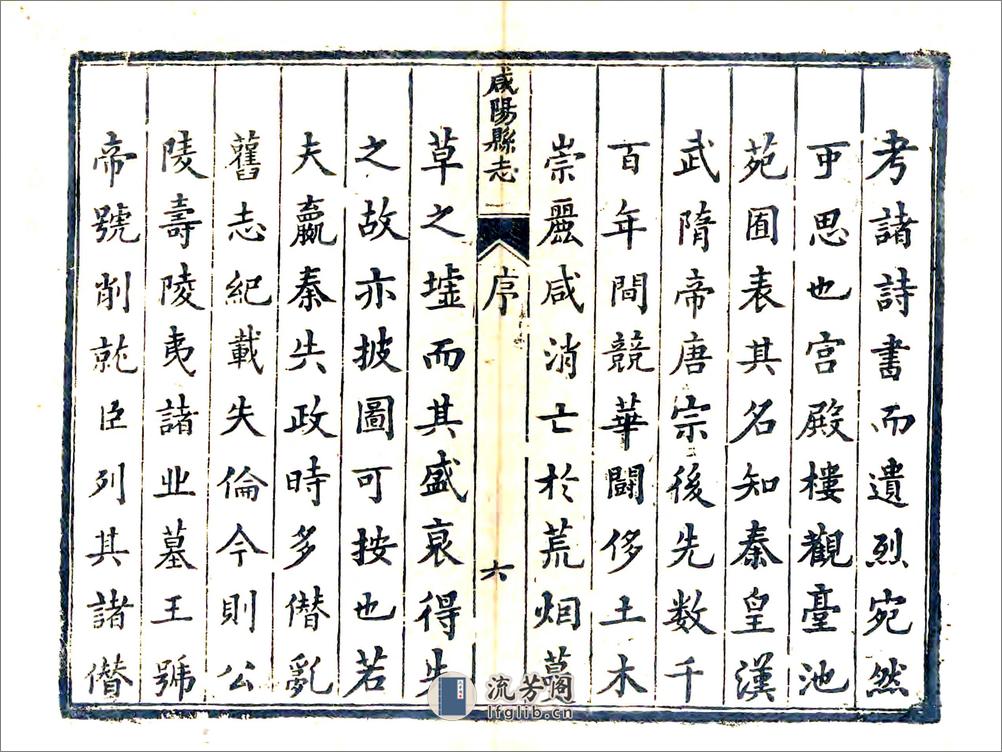 考諸詩書而遺烈宛然
可思也宮殿樓觀臺池
苑囿表其名知秦皇漢
武隋帝唐宗後先数千
百年間競華鬭侈土木
崇麗咸消亡於荒烟蔓
咸陽縣志
序
六
草之墟而其盛衰得失
之故亦披圖可按也若
夫嬴秦失政時多僣亂
舊志紀載失倫今則公
陵壽陵夷諸丘墓王號
帝號削就臣列其諸僣
流芳閣
lfglib.cn